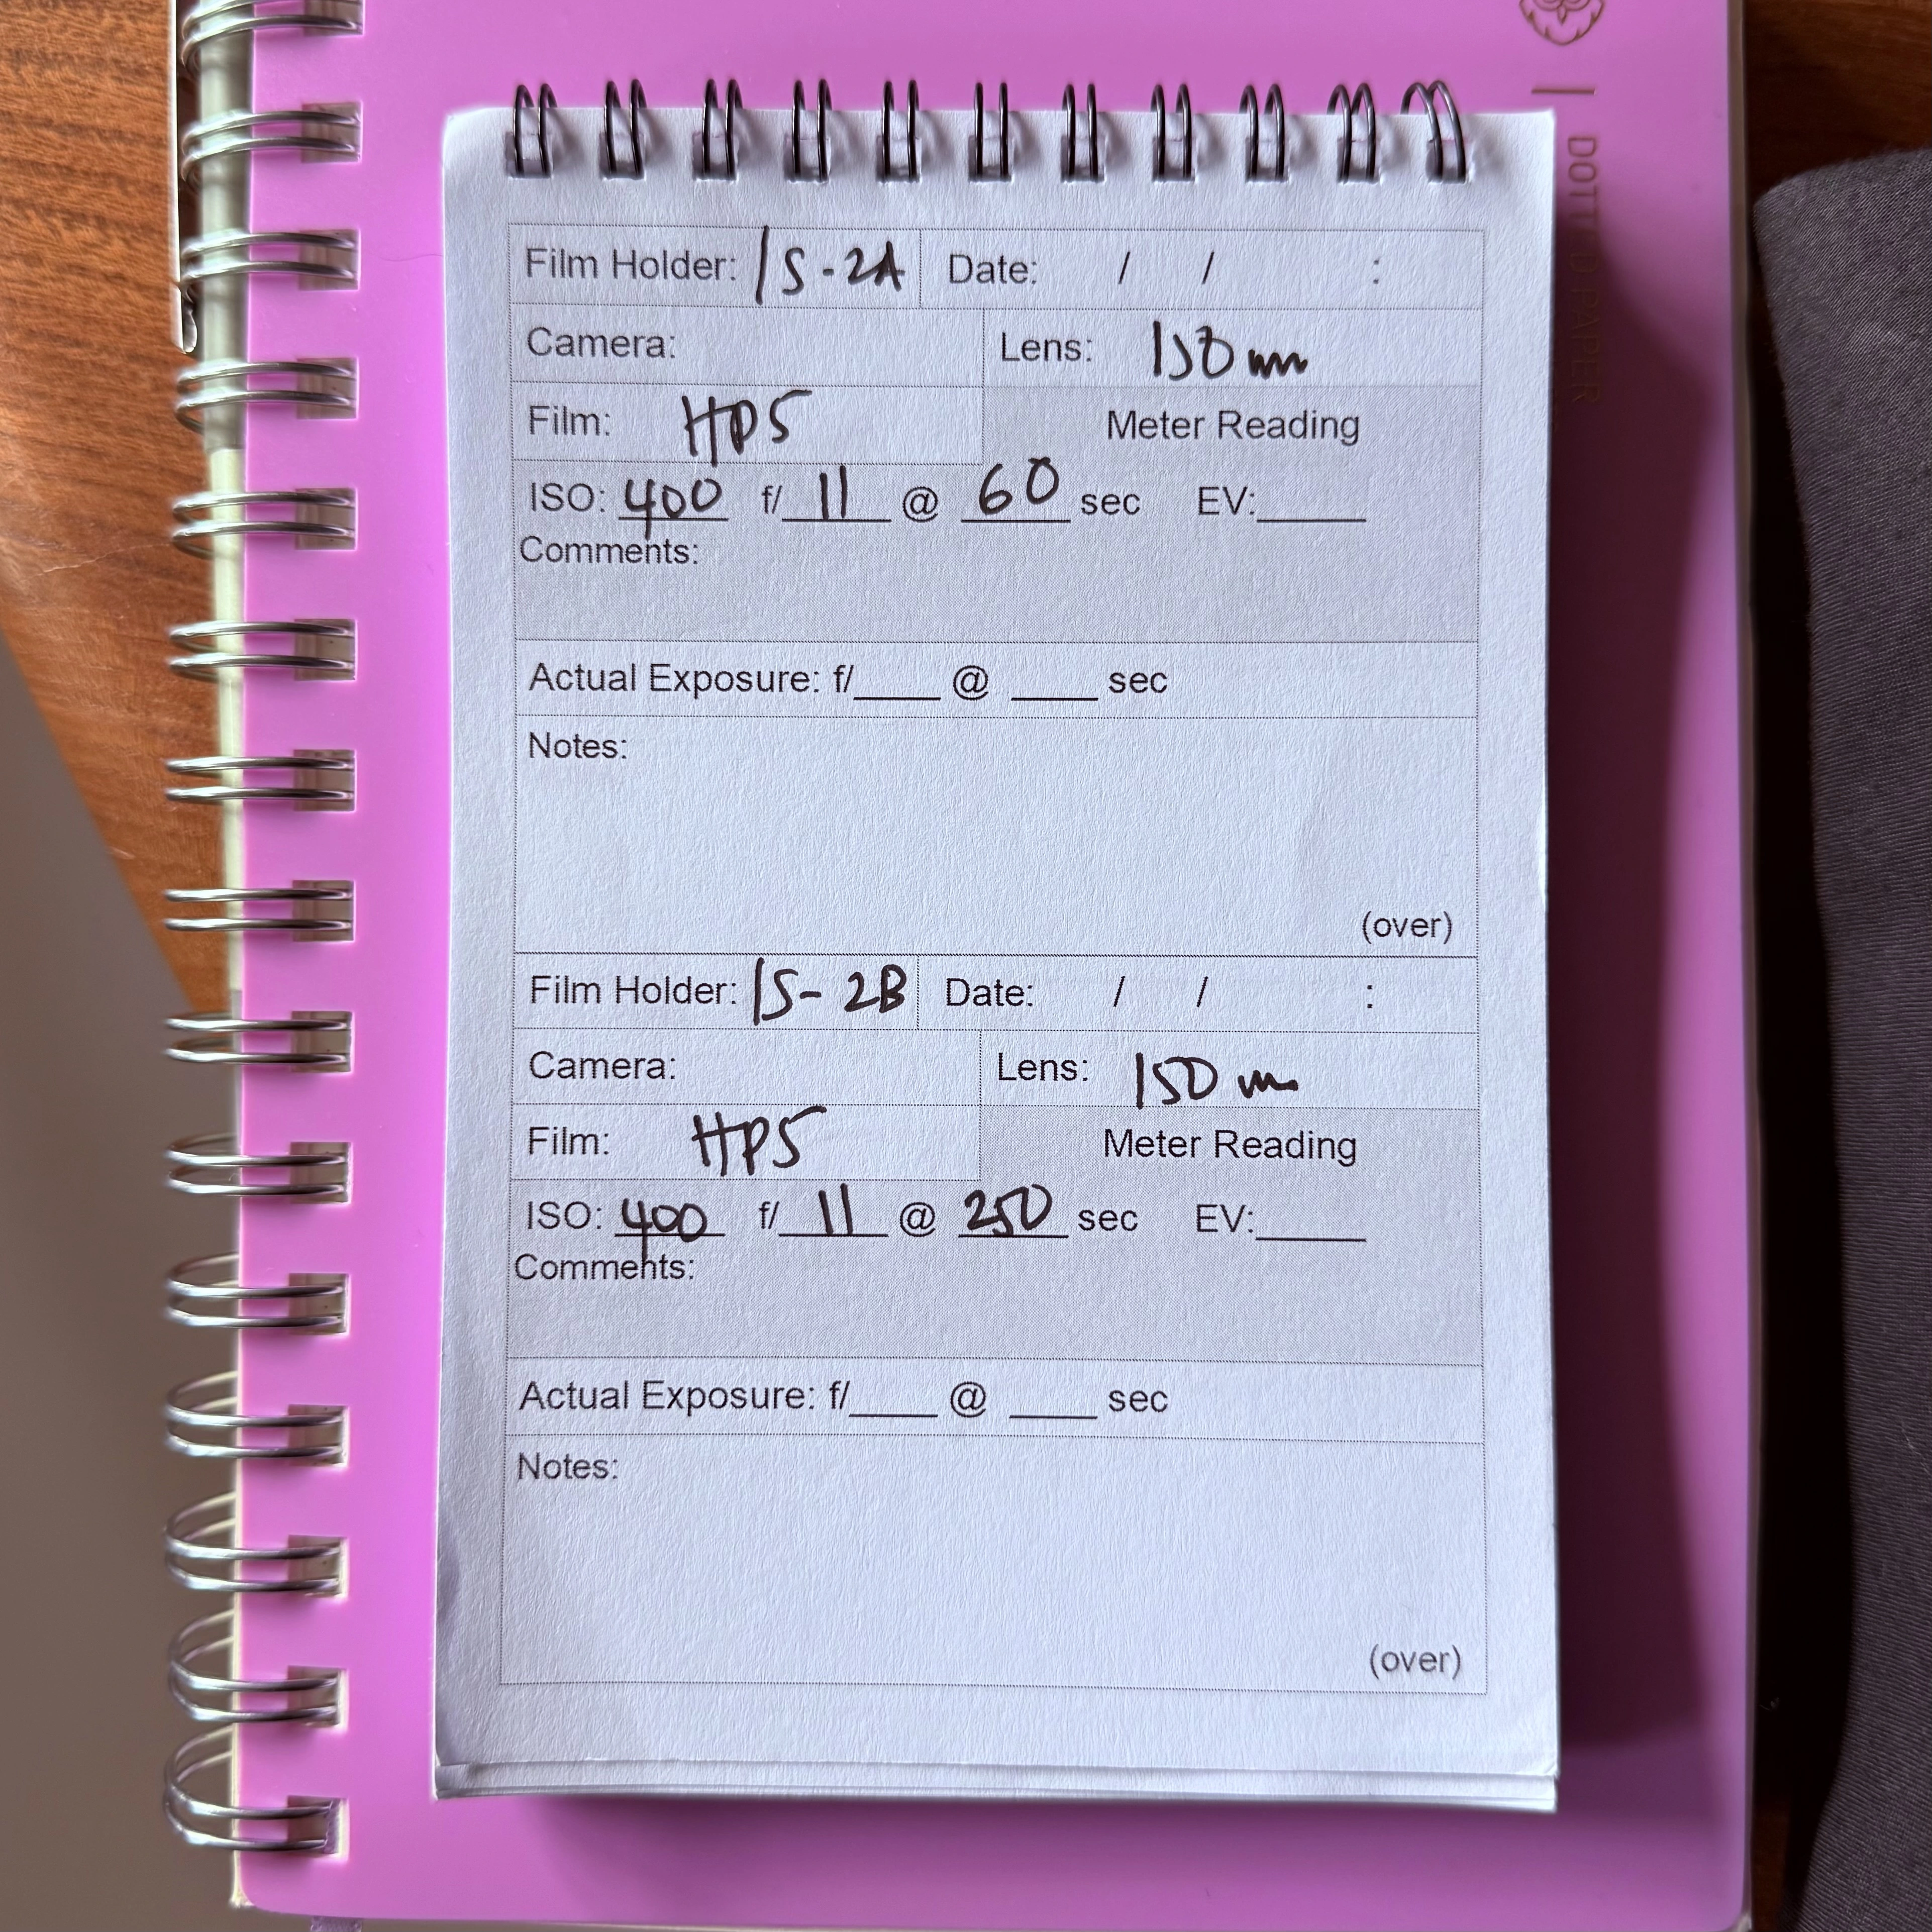 Film Holder: 15-2A Date: / / :
Camera: Lens: 150mm
Film: HP5 Meter Reading
ISO: 400 f/ 11 @ 60 sec EV:____
Comments:
Actual Exposure: f/____ @ ____ sec
Notes:
(over)
Film Holder: 15-2B Date: / / :
Camera: Lens: 150 m
Film: HP5 Meter Reading
ISO: 400 f/ 11 @ 250 sec EV:____
Comments:
Actual Exposure: f/____ @ ____ sec
Notes:
(over)
DOTTED PAPER